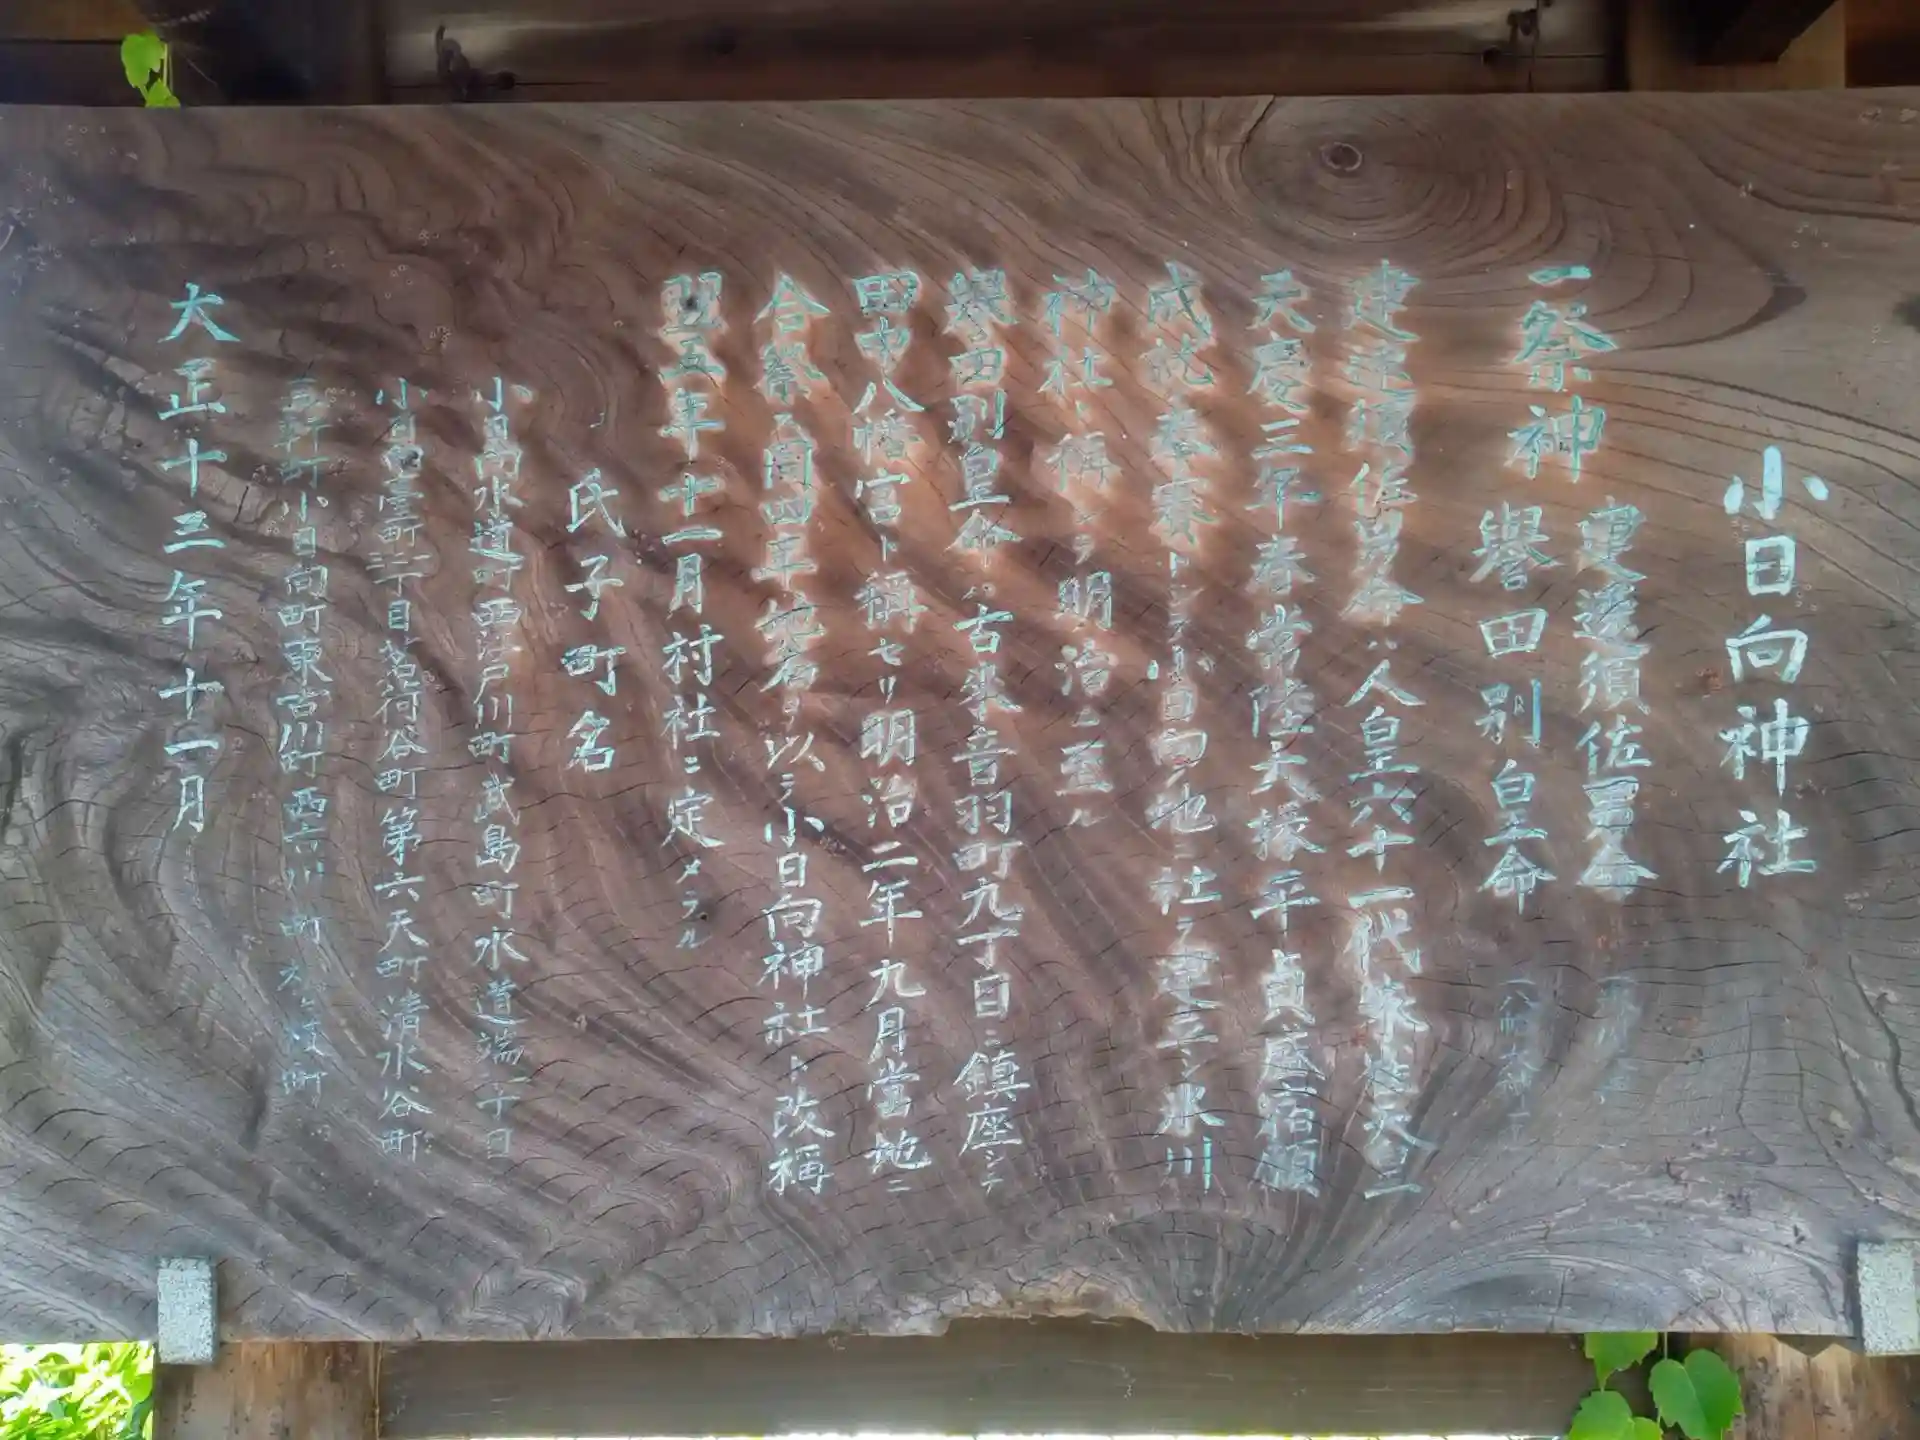 小日向神社
一祭神
建速須佐男命
譽田別皇命
建速須佐男命ハ人皇六十一代朱雀天皇
天慶三年春常陸大掾平貞盛宿願
成就奉賽トシテ小日向ノ地ニ社ヲ建立シ氷川
神社ト稱シテ明治ニ至ル
譽田別皇命ハ古来音羽町九丁目ニ鎮座シテ
田中八幡宮ト稱セリ明治二年九月當地ニ
合祭ス同四年地名ヲ以テ小日向神社ト改稱
翌五年十一月村社ニ定メラル
氏子町名
小日向水道町西江戸川町武島町水道端一丁目
小日向臺町一二丁目茗荷谷町第六天町清水谷町
三軒町小日向町東古川町西古川町
大正十三年十一月